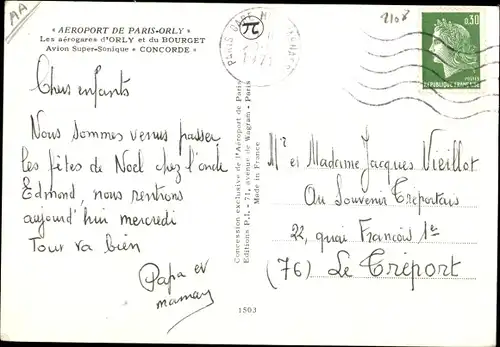 AA
« AEROPORT DE PARIS-ORLY »
Les aérogares d'ORLY et du BOURGET
Avion Super-Sonique « CONCORDE »
Chers enfants
Nous sommes venus passer
les fêtes de Noel chez l'oncle
Edmond, nous rentrons
aujourd'hui mercredi
Tout va bien
Papa et
maman
Concession exclusive de l'Aéroport de Paris
Editions P.I. - 71, avenue de Wagram - Paris
Made in France
1503
π
PARIS GARE
2108
0,30
POSTES
REPUBLIQUE FRANCAISE
Mr et Madame Jacques Vieillot
Au Souvenir Tréportais
22, quai François 1er
(76) Le Tréport